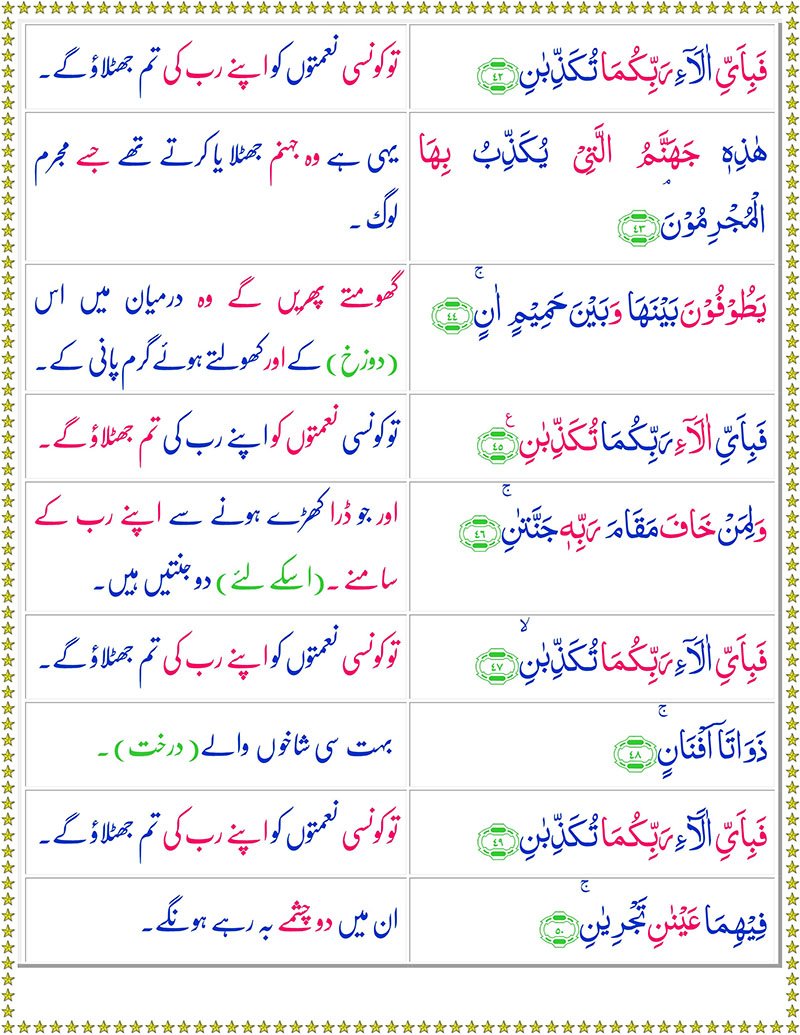 فَبِاَيِّ اٰلَآءِ رَبِّكُمَا تُكَذِّبٰنِ ﴿۴۲﴾
تو کونسی نعمتوں کو اپنے رب کی تم جھٹلاؤ گے۔
هٰذِهٖ جَهَنَّمُ الَّتِيْ يُكَذِّبُ بِهَا
الْمُجْرِمُوْنَ ۘ ﴿۴۳﴾
یہی ہے وہ جہنم جھٹلا یا کرتے تھے جسے مجرم
لوگ۔
يَطُوْفُوْنَ بَيْنَهَا وَبَيْنَ حَمِيْمٍ اٰنٍ ۚ ﴿۴۴﴾
گھومتے پھریں گے وہ درمیان میں اس
(دوزخ) کے اور کھولتے ہوئے گرم پانی کے۔
فَبِاَيِّ اٰلَآءِ رَبِّكُمَا تُكَذِّبٰنِ ع ﴿۴۵﴾
تو کونسی نعمتوں کو اپنے رب کی تم جھٹلاؤ گے۔
وَلِمَنْ خَافَ مَقَامَ رَبِّهٖ جَنَّتٰنِ ۚ ﴿۴۶﴾
اور جو ڈرا کھڑے ہونے سے اپنے رب کے
سامنے۔ (اسکے لئے) دو جنتیں ہیں۔
فَبِاَيِّ اٰلَآءِ رَبِّكُمَا تُكَذِّبٰنِ ۙ ﴿۴۷﴾
تو کونسی نعمتوں کو اپنے رب کی تم جھٹلاؤ گے۔
ذَوَاتَاۤ اَفْنَانٍ ۚ ﴿۴۸﴾
بہت سی شاخوں والے (درخت)۔
فَبِاَيِّ اٰلَآءِ رَبِّكُمَا تُكَذِّبٰنِ ﴿۴۹﴾
تو کونسی نعمتوں کو اپنے رب کی تم جھٹلاؤ گے۔
فِيْهِمَا عَيْنٰنِ تَجْرِيٰنِ ۚ ﴿۵۰﴾
ان میں دو چشمے بہ رہے ہونگے۔